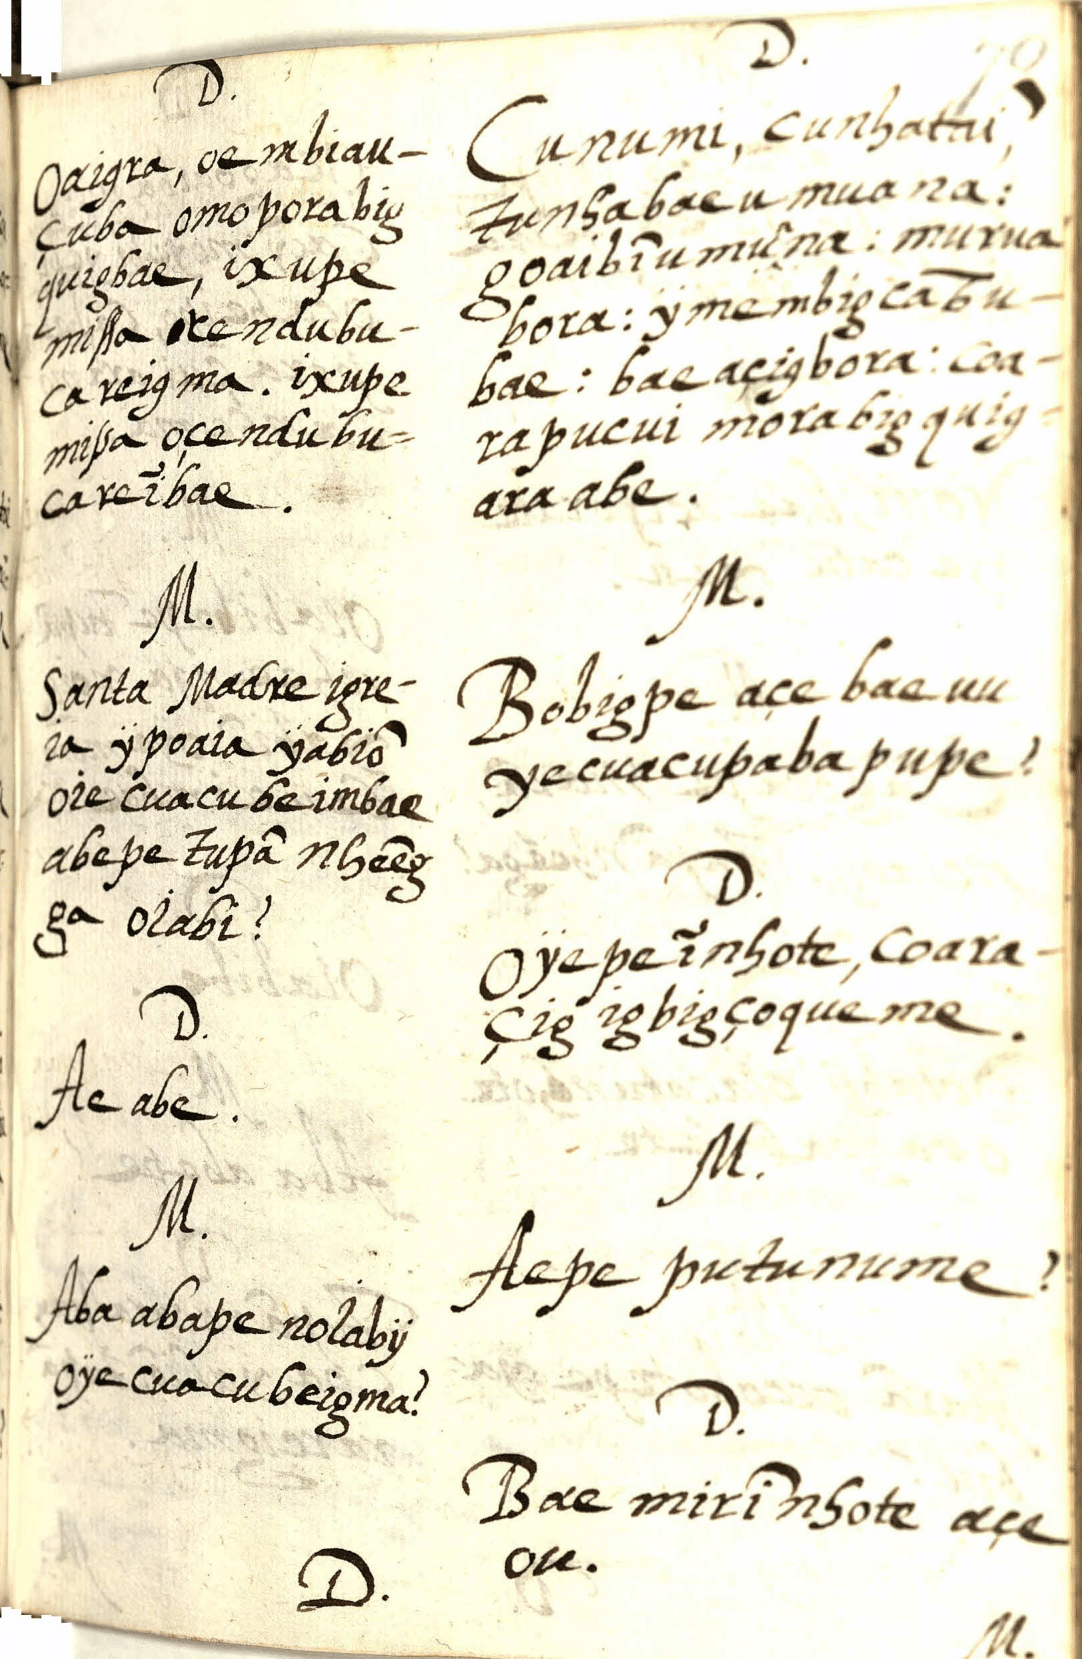 D.
Oaigra, oe mbiau-
çuba omoporabig
quigbae, ixupe
missa xendubu-
careigma. ixupe
missa oçendubu=
careĩbae.
M.
Santa Madre igre-
ia ÿpoaia ÿabiõ
oie cuacubeimbae
abepe tupã nheẽg
ga oiabi?
D.
Ae abe.
M.
Aba abape noiabÿ
oÿecuacubeigma?
D.
D.
70
Cunumi, cunhataĩ,
tunhabaeumuana:
goaibĩumuẽna: murua
bora: ÿmembigcatu-
bae: bae açigbora: coa-
rapucui morabigquig-
ara abe.
M.
Bobigpe açe bae uu
yecuacupaba pupe?
D.
Oÿepeĩnhote, coara-
çig igbigçoqueme.
M.
Aepe putunume?
D.
Bae mirĩnhote açe
ou.
M.